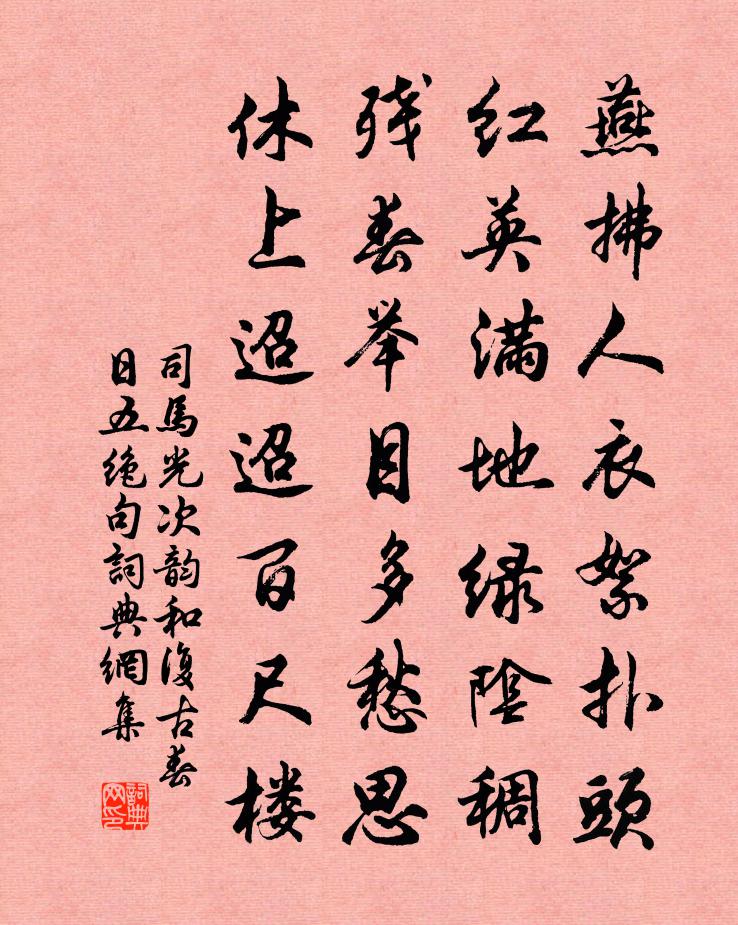 燕拂人衣絮扑頭
红英满地绿陰稠
残春举目多愁思
休上迢迢百尺楼
司馬光次韵和復古春
日五絶句詞典網集
詞典网印